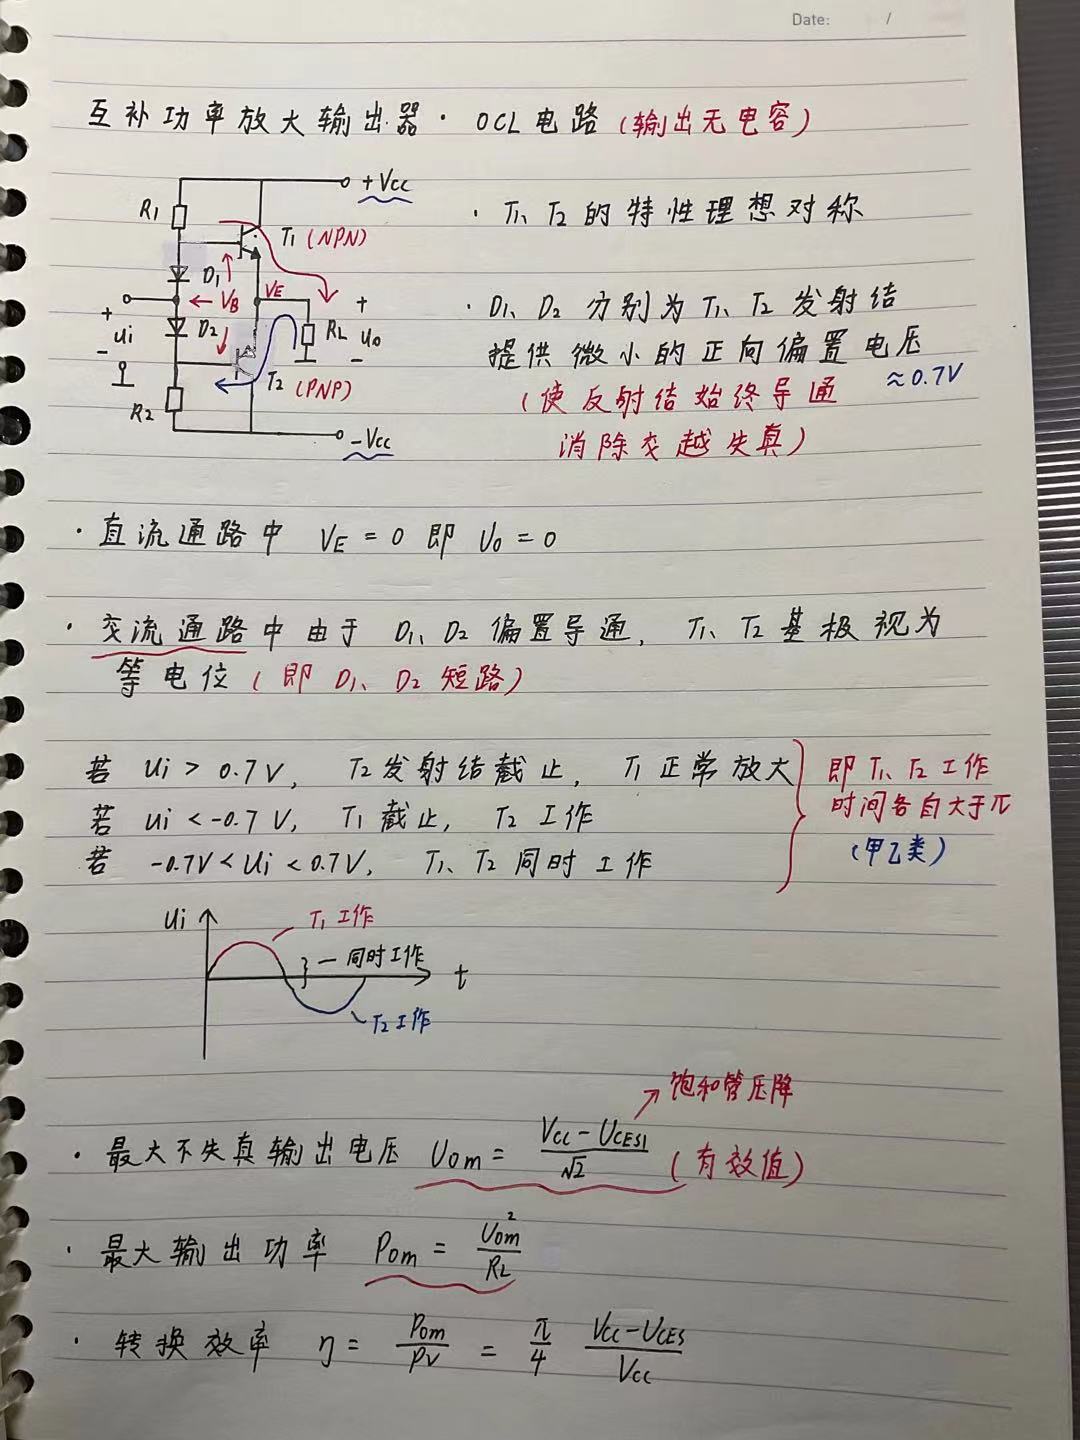 Date: /
互补功率放大输出器·OCL电路(输出无电容)
+Vcc
R1
T1(NPN)
·T1、T2的特性理想对称
D1
VB
VE
+
ui
-
D2
RL
+
uo
-
·D1、D2分别为T1、T2发射结
提供微小的正向偏置电压
≈0.7V
(使反射结始终导通
消除交越失真)
T2(PNP)
R2
-Vcc
·直流通路中 VE=0即Uo=0
·交流通路中由于D1、D2偏置导通,T1、T2基极视为
等电位(即D1、D2短路)
若 Ui>0.7V, T2发射结截止, T1正常放大
若 ui<-0.7V, T1截止, T2工作
若 -0.7V<Ui<0.7V, T1、T2同时工作
即T1、T2工作
时间各自大于π
(甲乙类)
Ui
T1工作
同时工作
t
T2工作
饱和管压降
·最大不失真输出电压 Uom=(Vcc-UCES1)/√2 (有效值)
·最大输出功率 Pom=Uom²/RL
·转换效率 η=Pom/PV=π/4 (Vcc-UCES)/Vcc